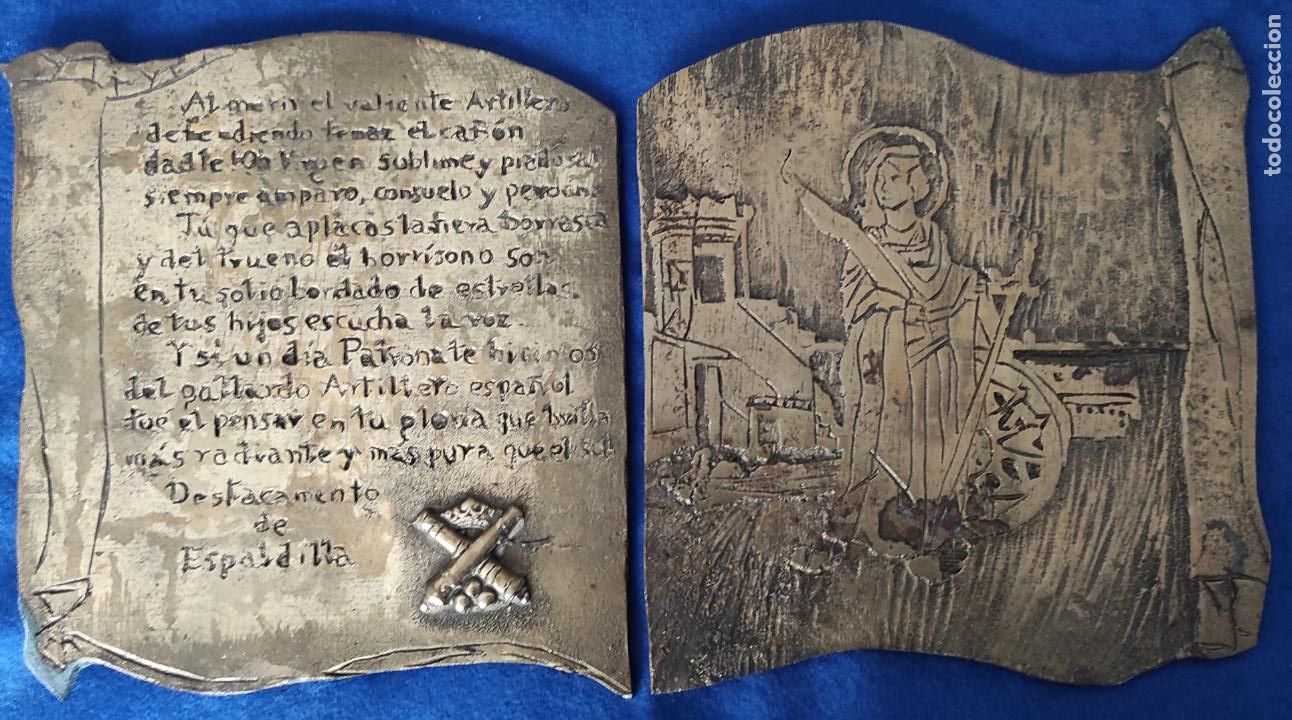 Al morir el valiente Artillero
defendiendo tenaz el cañón
dadle !Oh Virgen sublime y piadosa!
siempre amparo, consuelo y perdón.
Tú que aplacas la fiera borrasca
y del trueno el horrísono son
en tu solio bordado de estrellas
de tus hijos escucha la voz.
Y si un día Patrona te hicimos
del gallardo Artillero español
fué el pensar en tu gloria que brilla
más radiante y mas pura que el sol
Destacamento
de
Espaldilla
todocoleccion